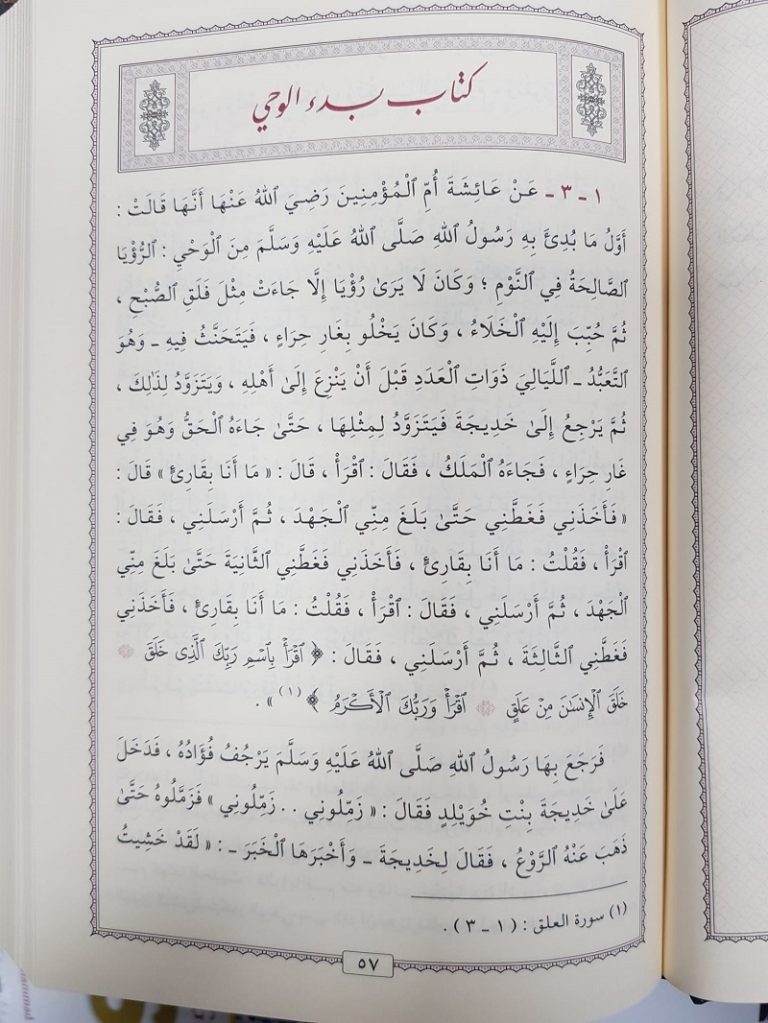 كتاب بدء الوحي
١ - ٣ - عَنْ عَائِشَةَ أُمِّ ٱلْمُؤْمِنِينَ رَضِيَ ٱللهُ عَنْهَا أَنَّهَا قَالَتْ :
أَوَّلُ مَا بُدِئَ بِهِ رَسُولُ ٱللهِ صَلَّى ٱللهُ عَلَيْهِ وَسَلَّمَ مِنَ ٱلْوَحْيِ : ٱلرُّؤْيَا
ٱلصَّالِحَةُ فِي ٱلنَّوْمِ ؛ وَكَانَ لَا يَرَىٰ رُؤْيَا إِلَّا جَاءَتْ مِثْلَ فَلَقِ ٱلصُّبْحِ ،
ثُمَّ حُبِّبَ إِلَيْهِ ٱلْخَلَاءُ ، وَكَانَ يَخْلُو بِغَارِ حِرَاءٍ ، فَيَتَحَنَّثُ فِيهِ - وَهُوَ
ٱلتَّعَبُّدُ - ٱللَّيَالِيَ ذَوَاتِ ٱلْعَدَدِ قَبْلَ أَنْ يَنْزِعَ إِلَىٰ أَهْلِهِ ، وَيَتَزَوَّدُ لِذَٰلِكَ ،
ثُمَّ يَرْجِعُ إِلَىٰ خَدِيجَةَ فَيَتَزَوَّدُ لِمِثْلِهَا ، حَتَّىٰ جَاءَهُ ٱلْحَقُّ وَهُوَ فِي
غَارِ حِرَاءٍ ، فَجَاءَهُ ٱلْمَلَكُ ، فَقَالَ : ٱقْرَأْ ، قَالَ : « مَا أَنَا بِقَارِئٍ » قَالَ :
« فَأَخَذَنِي فَغَطَّنِي حَتَّىٰ بَلَغَ مِنِّي ٱلْجَهْدَ ، ثُمَّ أَرْسَلَنِي ، فَقَالَ :
ٱقْرَأْ ، فَقُلْتُ : مَا أَنَا بِقَارِئٍ ، فَأَخَذَنِي فَغَطَّنِي ٱلثَّانِيَةَ حَتَّىٰ بَلَغَ مِنِّي
ٱلْجَهْدَ ، ثُمَّ أَرْسَلَنِي ، فَقَالَ : ٱقْرَأْ ، فَقُلْتُ : مَا أَنَا بِقَارِئٍ ، فَأَخَذَنِي
فَغَطَّنِي ٱلثَّالِثَةَ ، ثُمَّ أَرْسَلَنِي ، فَقَالَ : ﴿ ٱقْرَأْ بِٱسْمِ رَبِّكَ ٱلَّذِى خَلَقَ
خَلَقَ ٱلْإِنسَٰنَ مِنْ عَلَقٍ ٱقْرَأْ وَرَبُّكَ ٱلْأَكْرَمُ ﴾ (١) » .
فَرَجَعَ بِهَا رَسُولُ ٱللهِ صَلَّى ٱللهُ عَلَيْهِ وَسَلَّمَ يَرْجُفُ فُؤَادُهُ ، فَدَخَلَ
عَلَىٰ خَدِيجَةَ بِنْتِ خُوَيْلِدٍ فَقَالَ : « زَمِّلُونِي . . زَمِّلُونِي » فَزَمَّلُوهُ حَتَّىٰ
ذَهَبَ عَنْهُ ٱلرَّوْعُ ، فَقَالَ لِخَدِيجَةَ - وَأَخْبَرَهَا ٱلْخَبَرَ - : « لَقَدْ خَشِيتُ
(١) سورة العلق : (١ - ٣) .
٥٧